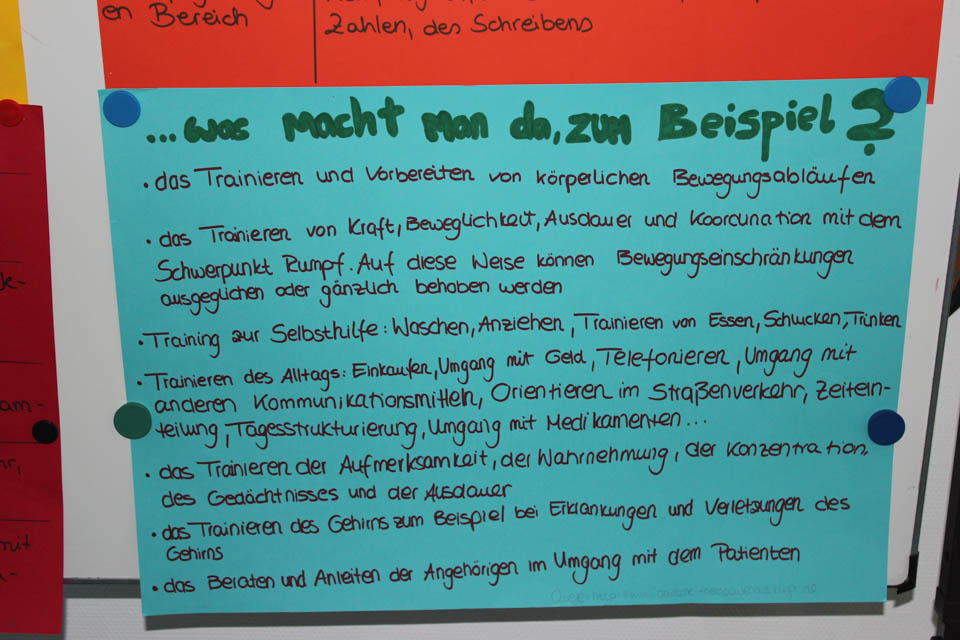 en Bereich
Zahlen, des Schreibens
...was macht man da, zum Beispiel?
• das Trainieren und Vorbereiten von körperlichen Bewegungsabläufen
• das Trainieren von Kraft, Beweglichkeit, Ausdauer und Koordination mit dem
Schwerpunkt Rumpf. Auf diese Weise können Bewegungseinschränkungen
ausgeglichen oder gänzlich behoben werden
• Training zur Selbsthilfe: Waschen, Anziehen, Trainieren von Essen, Schlucken, Trinken
• Trainieren des Alltags: Einkaufen, Umgang mit Geld, Telefonieren, Umgang mit
anderen Kommunikationsmitteln, Orientieren im Straßenverkehr, Zeitein-
teilung, Tagesstrukturierung, Umgang mit Medikamenten...
• das Trainieren der Aufmerksamkeit, der Wahrnehmung, der Konzentration,
des Gedächtnisses und der Ausdauer
• das Trainieren des Gehirns zum Beispiel bei Erkrankungen und Verletzungen des
Gehirns
• das Beraten und Anleiten der Angehörigen im Umgang mit dem Patienten
k-
am-
mit